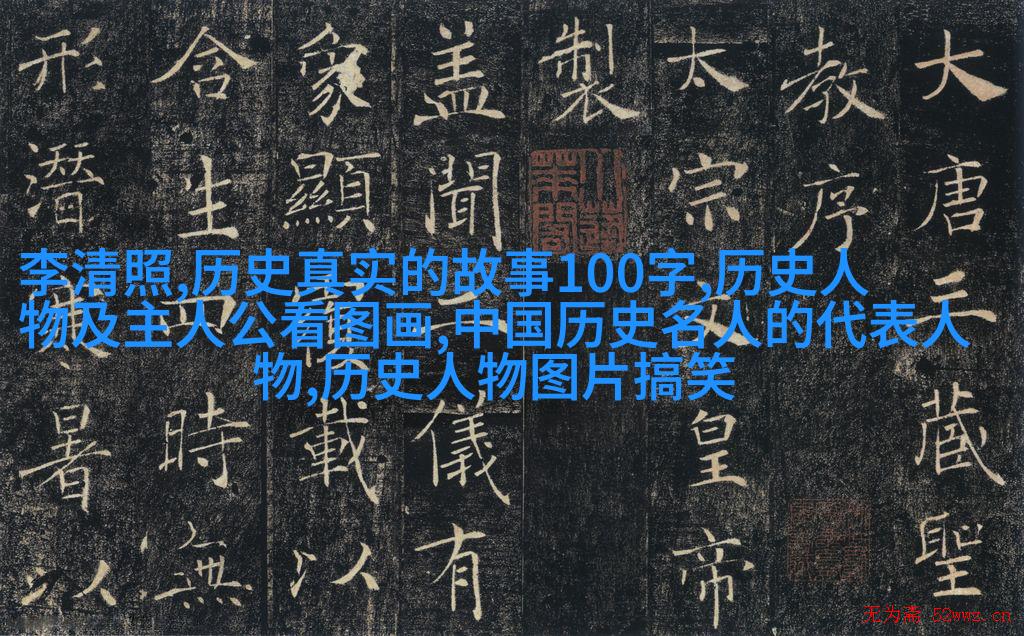 大唐三藏聖
教序
太宗文皇帝
製
盖聞二儀有
象顯覆載以
含生四時無
形潛寒暑以
李清照,历史真实的故事100字,历史人
物及主人公看图画,中国历史名人的代表人
物,历史人物图片搞笑
无为斋 52wwz.cn